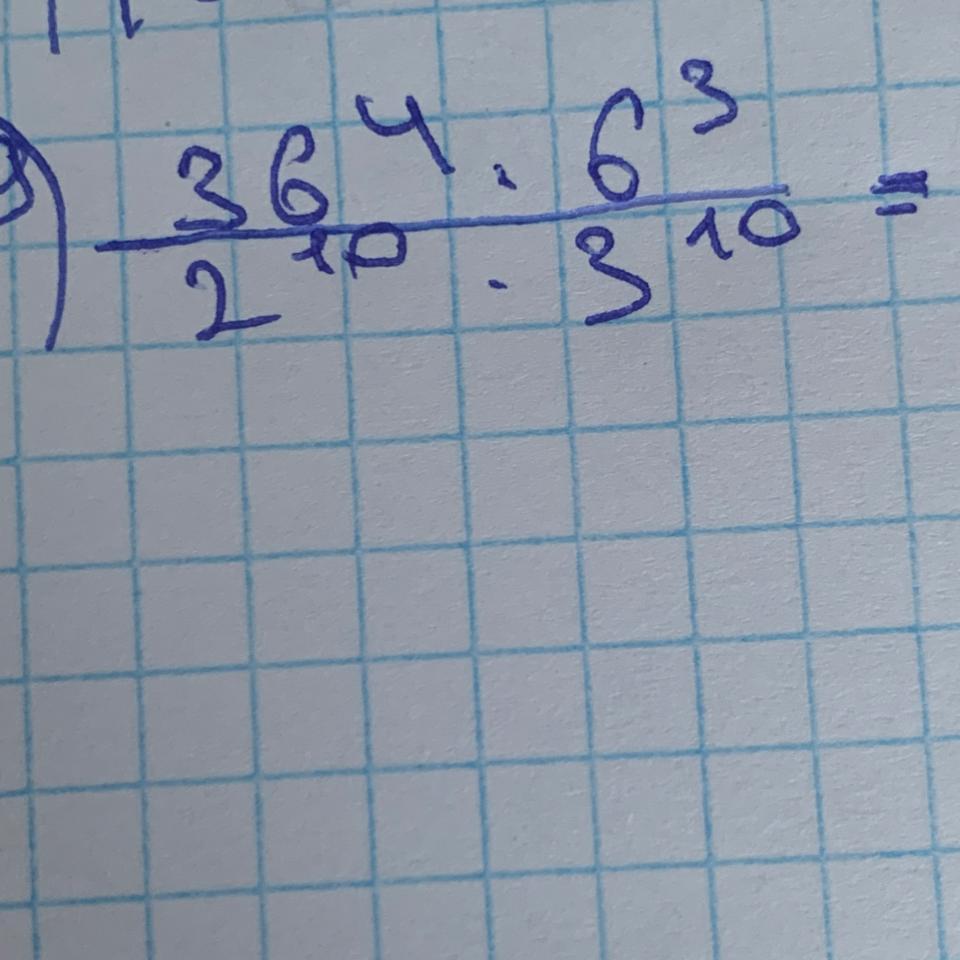 36⁴ · 6³
2¹⁰ · 3¹⁰ =